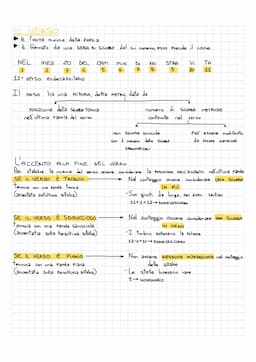 IL VERSO
► È l'unità minima della poesia
► È formato da una serie di sillabe dal cui numero esso prende il nome.
NEL MEZ ZO DEL CAM MIN DI NO STRA VI TA
1 2 3 4 5 6 7 8 9 10 11
11= verso endecasillabo
Il verso ha una misura, detta metro, data da
posizione della sillaba tonica numero di sillabe metriche
nell'ultima parola del verso contenute nel verso
non sempre coincide Può essere modificato
con il numero delle sillabe da
grammaticali
L'ACCENTO ALLA FINE DEL VERSO
Per stabilire la misura del verso occorre considerare la posizione dell'accento nell'ultima parola
SE IL VERSO È TRONCO Nel conteggio occorre considerare una sillaba
termina con una parola tronca IN PIÙ
(accentata sull'ultima sillaba)
SE IL VERSO È SDRUCCIOLO Nel conteggio occorre considerare una sillaba
termina con una parola sdrucciola IN MENO
(accentata sulla terzultima sillaba)
SE IL VERSO È PIANO Non avviene nessuna modificazione nel conteggio
termina con una parola piana delle sillabe
(accentata sulla penultima sillaba)